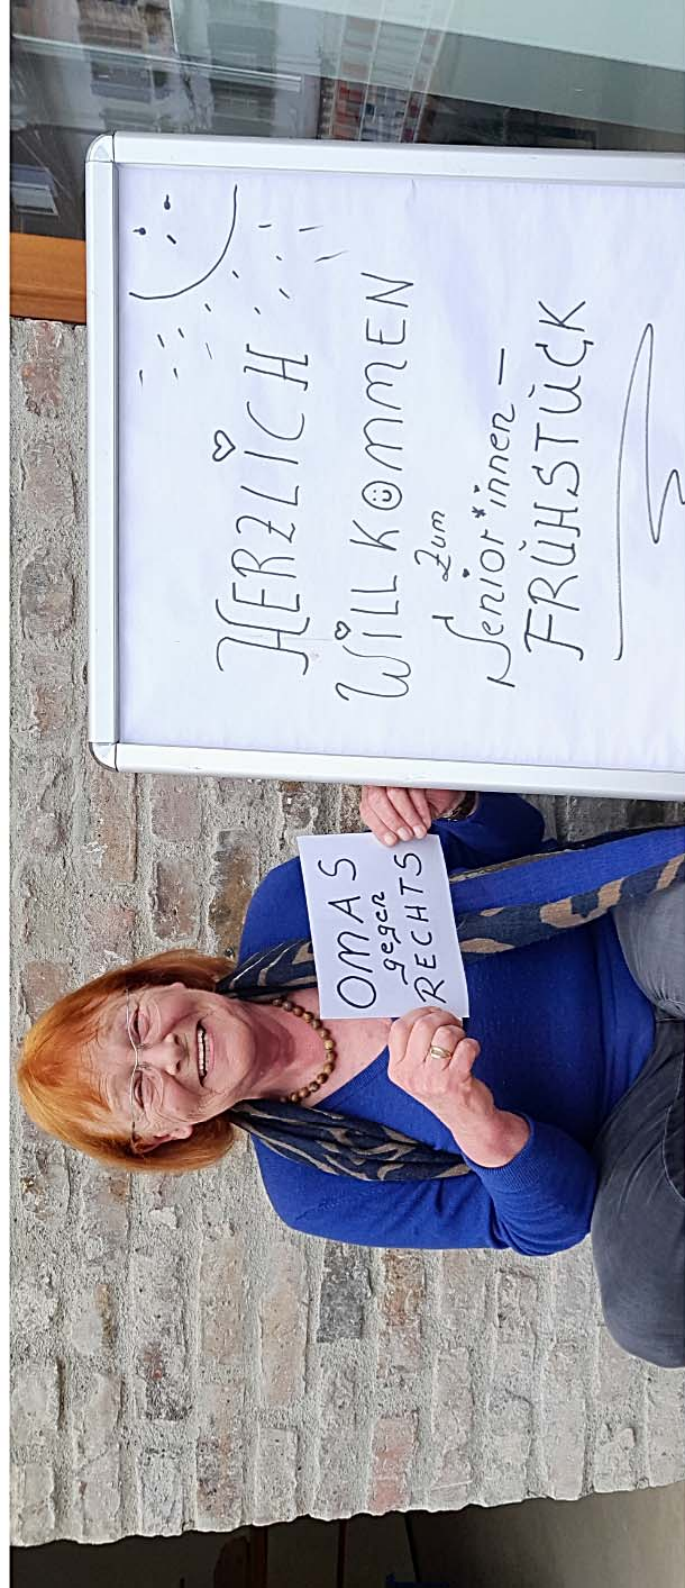 HERZLICH
WILLKOMMEN
zum
Senior*innen-
FRÜHSTÜCK
OMAS
gegen
RECHTS